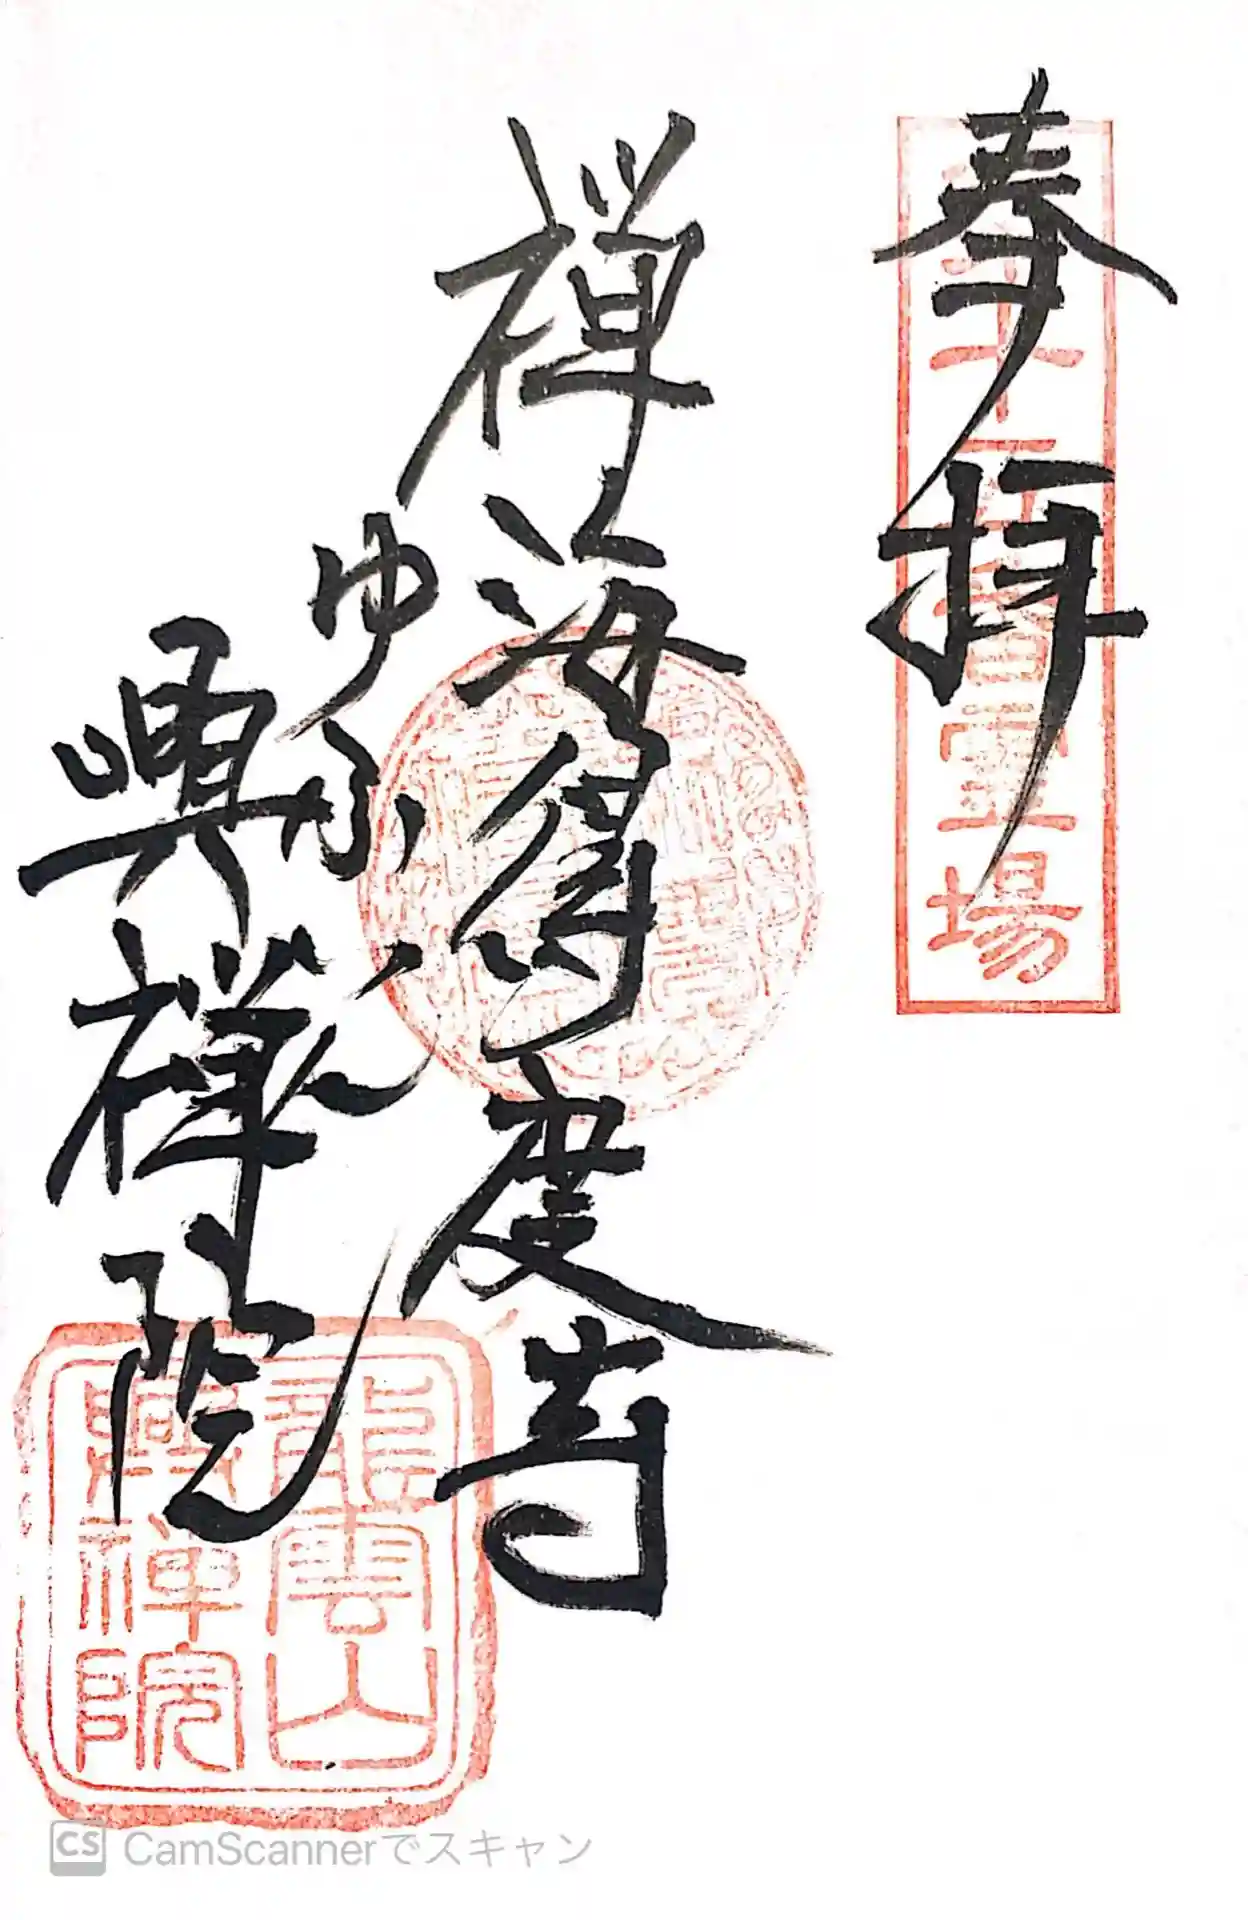 奉拝
禅海得度寺
ゆふ
興禅院
霊場
龍雲山
興禅院
CS CamScannerでスキャン